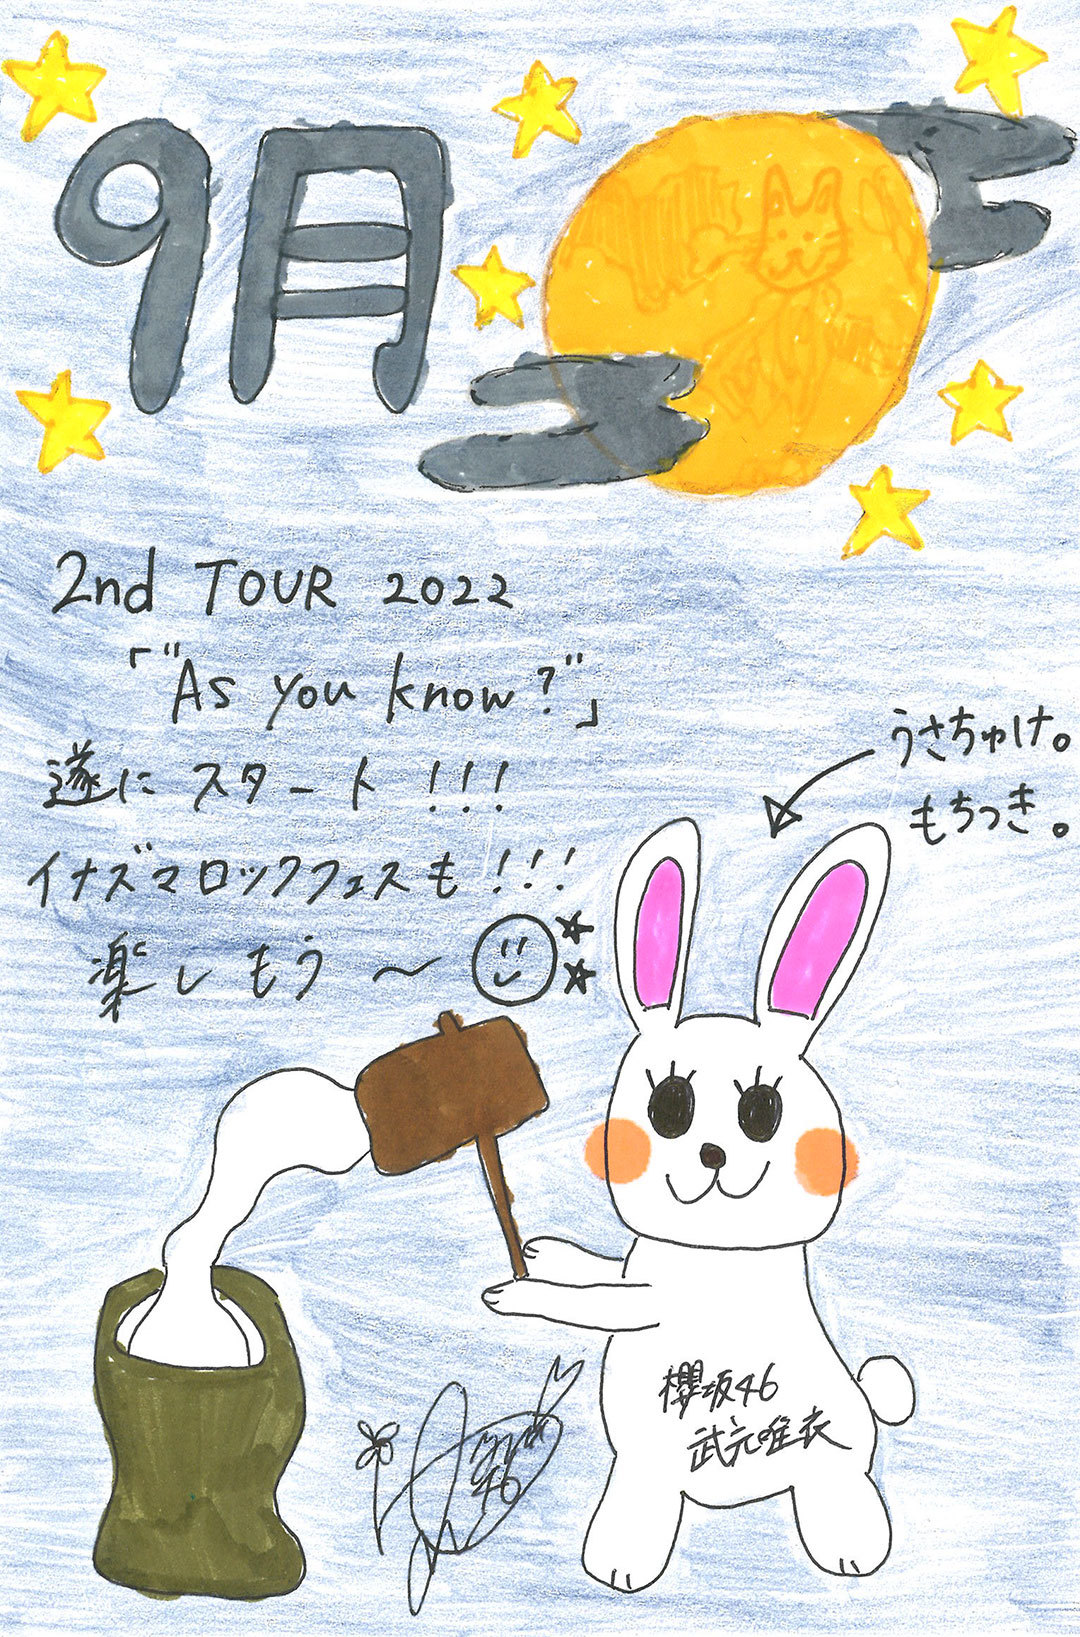 9月
2nd TOUR 2022
「"As you know?"」
遂にスタート!!!
イナズマロックフェスも!!!
楽しもう〜
うさちゅけ。
もちつき。
櫻坂46
武元唯衣
46